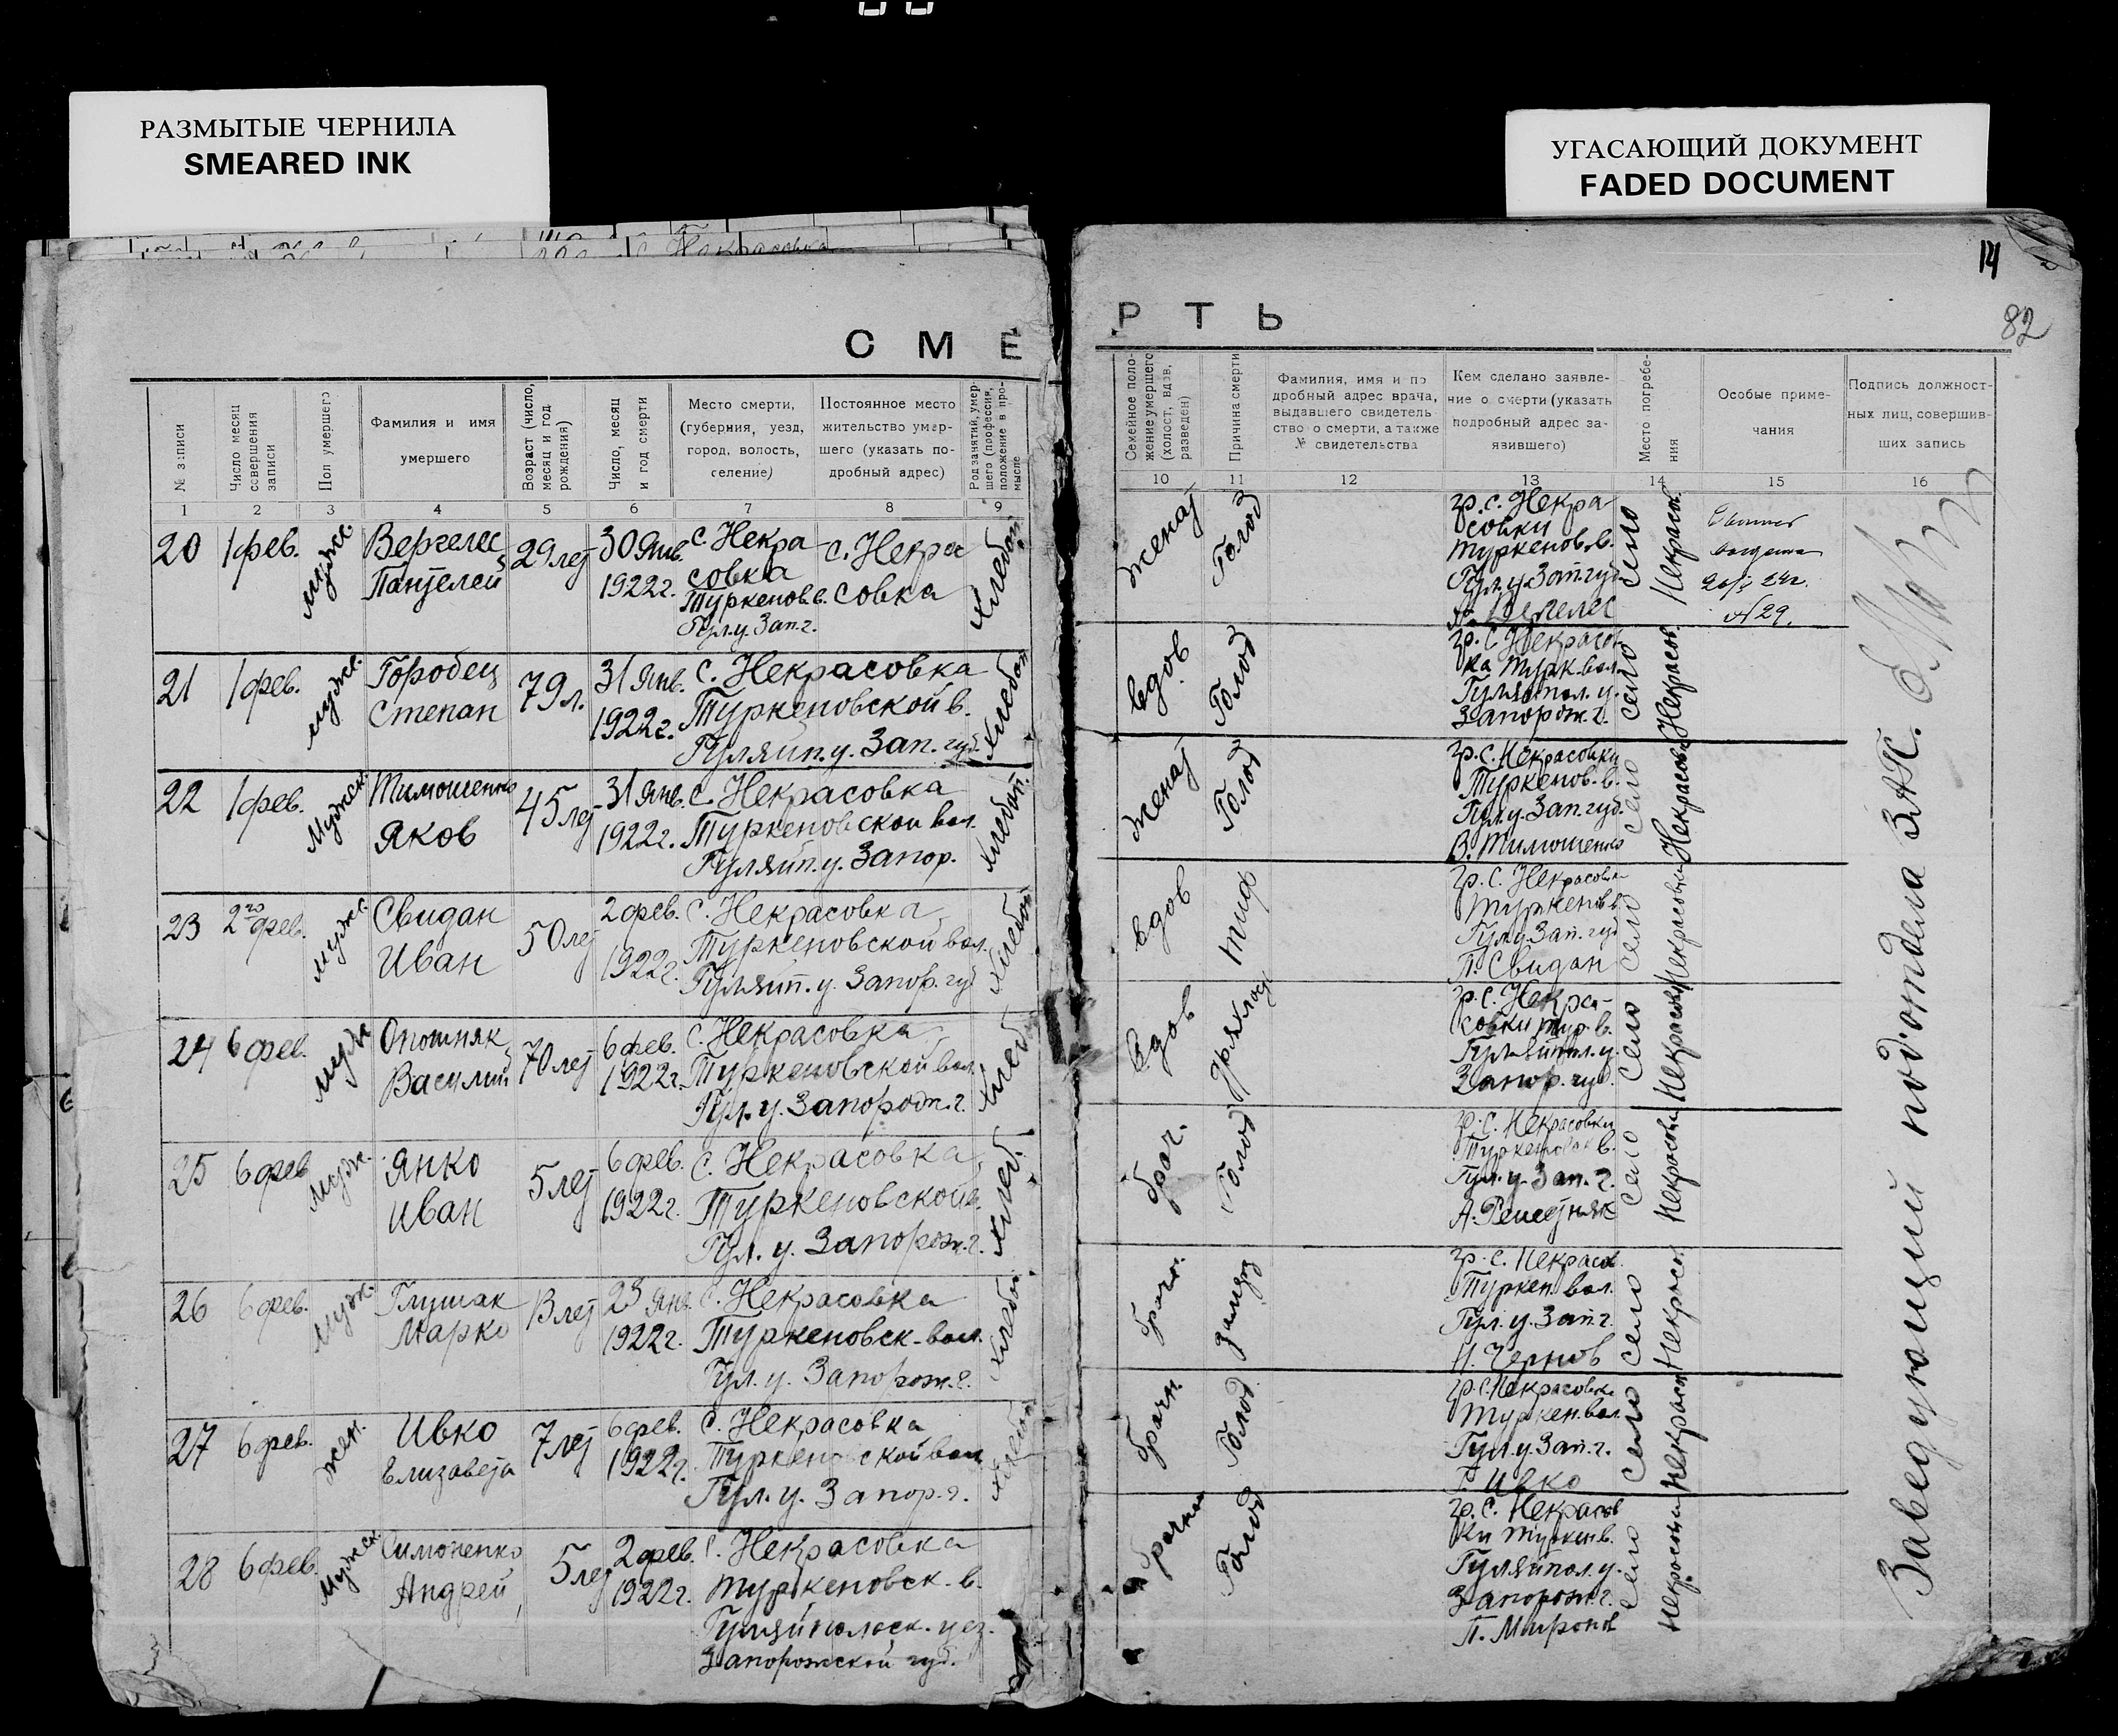 РАЗМЫТЫЕ ЧЕРНИЛА
SMEARED INK
УГАСАЮЩИЙ ДОКУМЕНТ
FADED DOCUMENT
14
82
С М Е Р Т Ь
№ записи
Число месяц совершения записи
Пол умершего
Фамилия и имя умершего
Возраст (число, месяц и год рождения)
Число, месяц и год смерти
Место смерти, (губерния, уезд, город, волость, селение)
Постоянное место жительство умершего (указать подробный адрес)
Род занятий, умершего (профессия, положение в промысле
Семейное положение умершего (холост, вдов, разведен)
Причина смерти
Фамилия, имя и подробный адрес врача, выдавшего свидетельство о смерти, а также № свидетельства
Кем сделано заявление о смерти (указать подробный адрес заявившего)
Место погребения
Особые примечания
Подпись должностных лиц, совершивших запись
1 2 3 4 5 6 7 8 9
10 11 12 13 14 15 16
20 1 фев. мужс. Вергелес 29 лет 30 Янв. с. Некра- с. Некра Хлебоп.
Пантелей 1922 г. совка совка
Туркенов. в.
Гул. у. Зап. г.
женат Голод гр. с. Некра
совки
Туркенов. в.
Гул. у. Зап. губ.
село Некрасов.
№ 29.
21 1 фев. мужс. Городец 79 л. 31 Янв. с. Некрасовка Хлебоп
Степан 1922 г. Туркеновской в.
Гуляйп. у. Зап. губ.
вдов Голод гр. с. Некрасов
ка Турк. вол.
Гуляйпол. у.
Запорож. г.
село Некрасов.
22 1 фев. Мужск. Тимошенко 45 лет 31 Янв. с. Некрасовка Хлебоп.
Яков 1922 г. Туркеновской вол.
Гуляйп. у. Запор.
женат Голод гр. с. Некрасовки
Туркенов. в.
Гул. у. Зап. губ.
В. Тимошенко
село Некрасовк
23 2го фев. мужс. Свидан 50 лет 2 фев. с. Некрасовка Хлебоп
Иван 1922 г. Туркеновской вол.
Гуляйп. у. Запор. губ
вдов тиф гр. с. Некрасовки
Туркенов в.
Гул. у. Зап. губ
П. Свидан
село Некрасовки
24 6 фев. мужс Опошняк 70 лет 6 фев. с. Некрасовка Хлеб
Василий 1922 г. Туркеновской вол.
Гул. у. Запорож. г.
вдов гр. с. Некра-
совки тур. в.
Гуляйпол. у.
Запор. губ.
село Некрасовк
25 6 фев мужс. Янко 5 лет 6 фев. с. Некрасовка Хлеб.
Иван 1922 г. Туркеновской в.
Гул. у. Запорож. г.
брач. Голод гр. с. Некрасовки
Туркеновск в.
Гул. у. Зап. г.
село Некрасовки
26 6 фев. мужс. Глушак 13 лет 23 Янв. с. Некрасовка Хлебоп
Марко 1922 г. Туркеновск. вол.
Гул. у. Запорож. г.
брачн. гр. с. Некрасов.
Туркен. вол.
Гул. у. Зап. г.
И. Чернов
село Некрасов
27 6 фев. жен. Ивко 7 лет 6 фев. с. Некрасовка Хлебоп
Елизавета 1922 г. Туркеновской вол
Гул. у. Запор. г.
брачн. Голод гр. с. Некрасовки
Туркен. вол.
Гул. у. Зап. г.
Ивко
село Некрасов
28 6 фев. Мужск. Симоненко 5 лет 2 фев. с. Некрасовка
Андрей 1922 г. Туркеновск. в.
Гуляйпольск. уез.
Запорожской губ.
брачн Голод гр. с. Некрасов
ки Туркен в.
Гуляйпол. у.
Запорож. г.
П. Миронов
село Некрасовки
Заведующий подотдела ЗАГС.